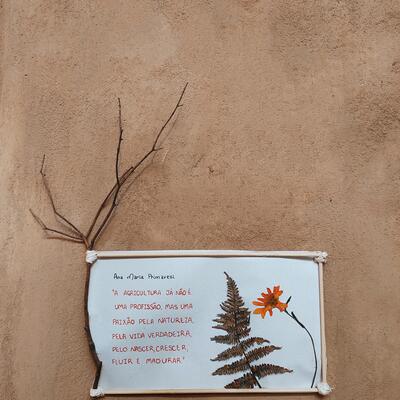 Ana Maria Primavesi
"A AGRICULTURA JÁ NÃO É
UMA PROFISSÃO, MAS UMA
PAIXÃO PELA NATUREZA,
PELA VIDA VERDADEIRA,
PELO NASCER, CRESCER,
FLUIR E MADURAR"